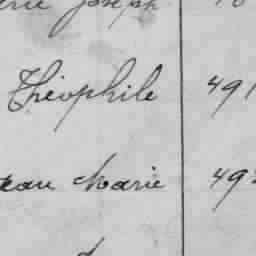 Joseph
Théophile 491
Jean Marie 492